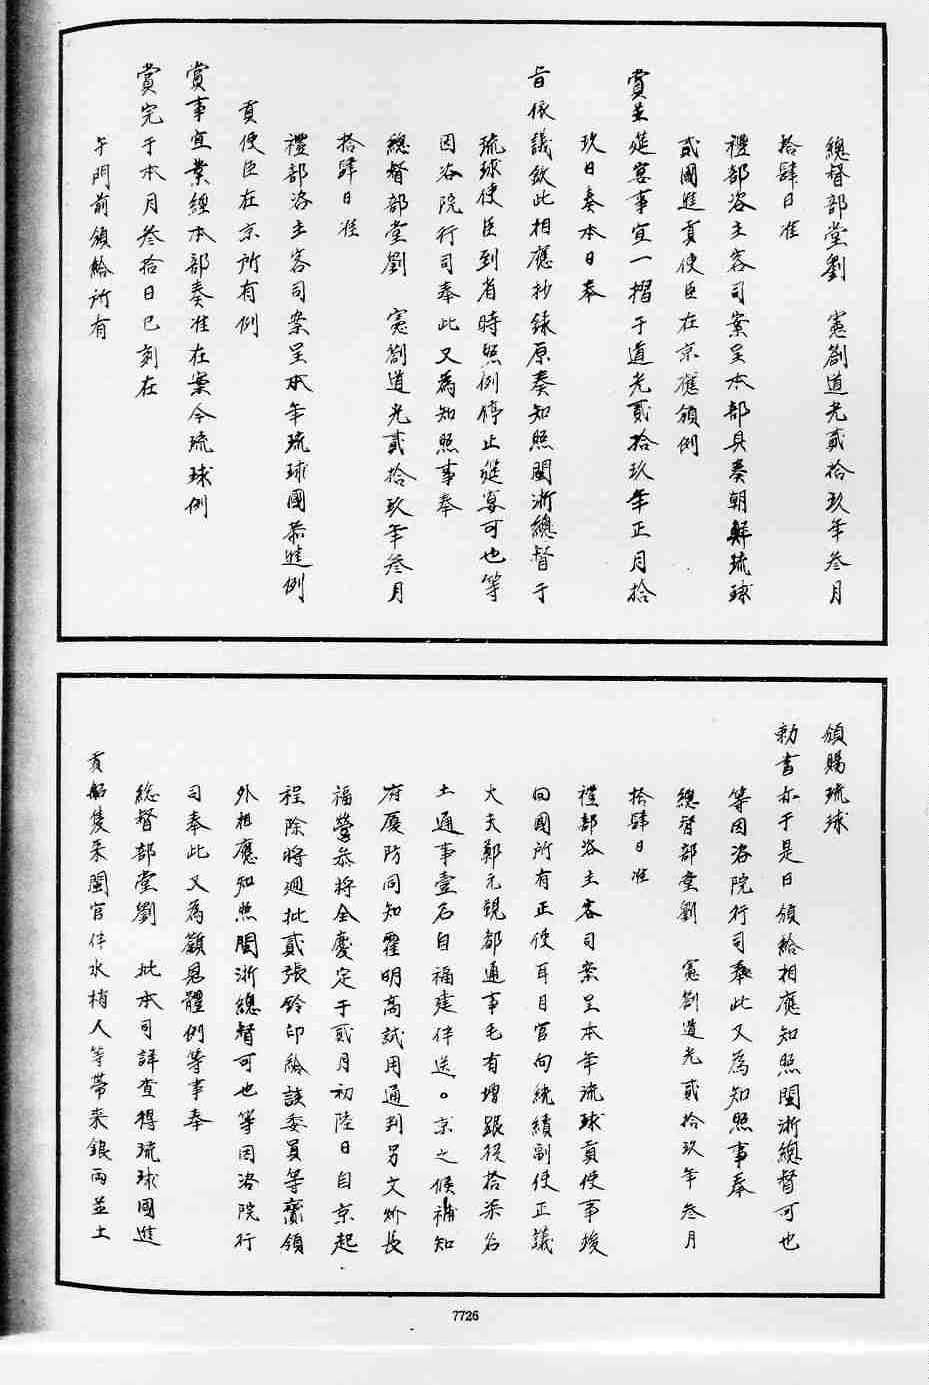 總督部堂劉　憲劄道光貳拾玖年叁月
拾肆日准
禮部咨主客司案呈本部具奏朝鮮琉球
貳國進貢使臣在京應領例
賞並筵宴事宜一摺于道光貳拾玖年正月拾
玖日奏本日奉
旨依議欽此相應抄錄原奏知照閩浙總督于
琉球使臣到省時照例停止筵宴可也等
因咨院行司奉此又為知照事奉
總督部堂劉　憲劄道光貳拾玖年叁月
拾肆日准
禮部咨主客司案呈本年琉球國恭進例
貢使臣在京所有例
賞事宜業經本部奏准在案今琉球例
賞完于本月叁拾日巳刻在
午門前頒給所有
頒賜琉球
勅書亦于是日頒給相應知照閩浙總督可也
等因咨院行司奉此又為知照事奉
總督部堂劉　憲劄道光貳拾玖年叁月
拾肆日准
禮部咨主客司案呈本年琉球貢使事竣
回國所有正使耳目官向統績副使正議
大夫鄭元覲都通事毛有增跟役拾柒名
土通事壹名自福建伴送。京之候補知
府廈防同知霍明高試用通判吕文炘長
福營叅將全慶定于貳月初陸日自京起
程除將廻批貳張鈐印給該委員等齎領
外相應知照閩浙總督可也等因咨院行
司奉此又為籲恩體例等事奉
総督部堂劉　批本司詳查得琉球國進
貢船隻来閩官伴水梢人等帶来銀兩並土
7726